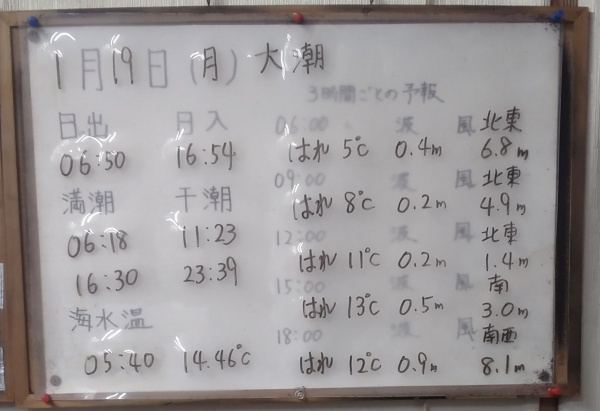 1月19日(月) 大潮
3時間ごとの予報
日出 月入
06:50 16:54
満潮 干潮
06:18 11:23
16:30 23:39
海水温
05:40 14.46℃
06:00 波 風 北東
はれ 5℃ 0.4m 6.8m
09:00 波 風 北東
はれ 8℃ 0.2m 4.9m
12:00 波 風 北東
はれ 11℃ 0.2m 1.4m
15:00 波 風 南
はれ 13℃ 0.5m 3.0m
18:00 波 風 南西
はれ 12℃ 0.9m 8.1m